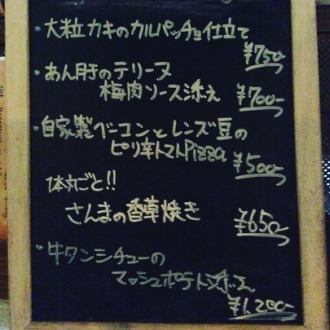 ・大粒カキのカルパッチョ仕立て
¥750-
・あん肝のテリーヌ
梅肉ソース添え
¥700-
・自家製ベーコンとレンズ豆の
ピリ辛トマトPizza
¥500-
1本丸ごと!!
さんまの香草焼き
¥650-
・牛タンシチューの
マッシュポテト添え
¥1,200-